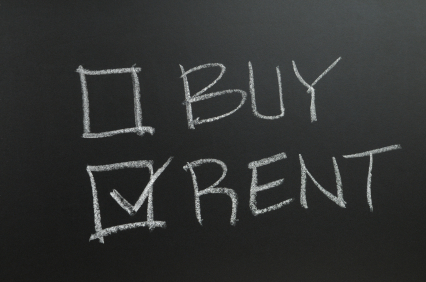 BUY
RENT